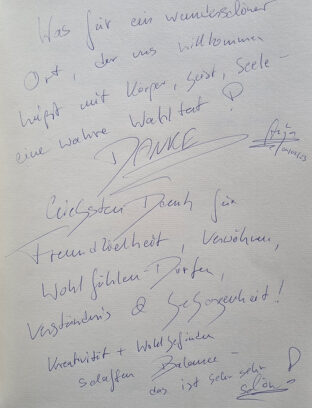 Was für ein wunderschöner
Ort, der uns willkommen
heißt mit Körper, Geist, Seele –
eine wahre Wohltat!
DANKE
Herzlichsten Dank für
Freundlichkeit, Verwöhnen,
Wohlfühlen-Dürfen,
Verständnis & Geborgenheit!
Kreativität + Wohlbefinden
schaffen Balance –
das ist sehr sehr
schön!